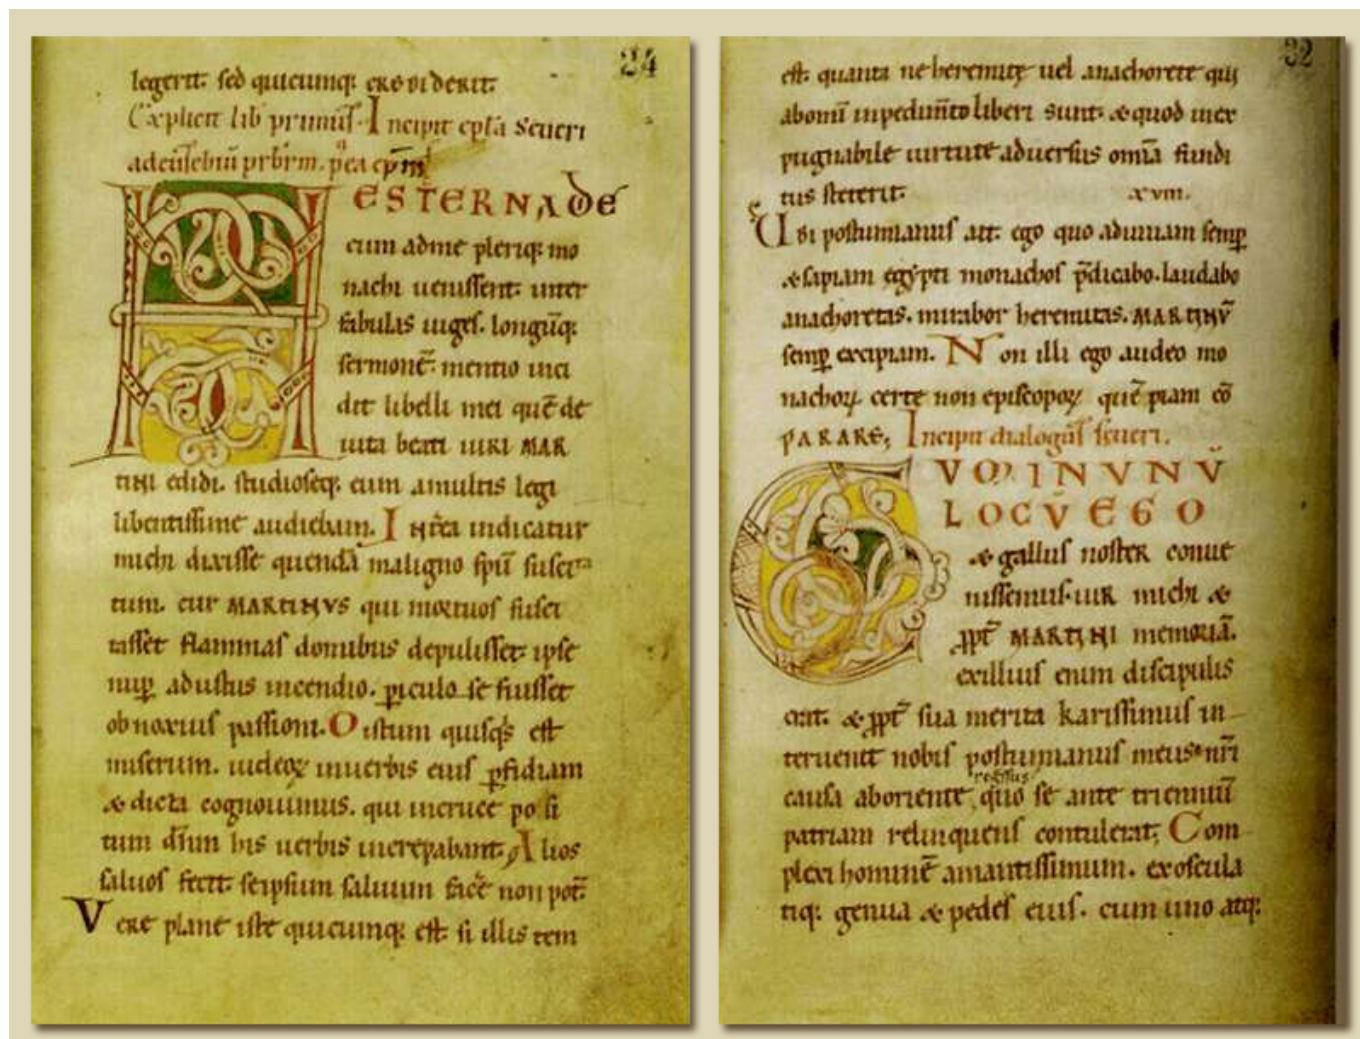 24
legerit. sed quicumq; crediderit.
Explicit lib primus. Incipit epła Seueri
ad eusebiū prbrm.
HESTERNA DE
cum ad me pleriq; mo
nachi uenissent. inter
fabulas iuges. longūq;
sermonē. mentio inci
dit libelli mei quē de
uita beati uiri MAR
TINI edidi. studioseq; eum a multis legi
libentissime audiebam. Int̄ea indicatur
michi dixisse quendā maligno spū suscita
tum. cur MARTINVS qui mortuos susci
tasset flammas domibus depulisset. ipse
nup̱ adustus incendio. p̱iculo se fuisset
obnoxius passioni. O istum quisq̇s est
miserum. iudeoꝝ in uerbis eius p̱fidiam
& dicta cognouimus. qui in cruce posi
tum dn̄m his uerbis increpabant. Alios
saluos fecit. seipsum saluum facē non pot̄.
Vere plane iste quicumq; est. si illis tem
32
est. quanta ne heremitę uel anachorete qui
ab omi impedimto liberi sunt. & quod inex
pugnabile uirtute aduersus omīa fundi
tus steterit. xviii.
Vbi postumianus ait. ego quo aduiuam semp̱
& sapiam egypti monachos p̄dicabo. laudabo
anachoretas. mirabor heremitas. MARTINV̄
semp̱ excipiam. Non illi ego audeo mo
nachoꝝ certe non episcopoꝝ quē piam cō
PARARE; Incipit dialogus seueri.
CVM IN VNV̄
LOCV̄ EGO
& gallus noster conue
nissemus. uir michi &
ꝓpt̄ MARTINI memoriā.
ex illius enim discipulis
erat. & ꝓpt̄ sua merita karissimus in
teruenit nobis postumianus meus nri
causa ab oriente regressus quo se ante trienniū
patriam relinquens contulerat; Com
plexi hominē amantissimum. exoscula
tiq; genua & pedes eius. cum uno atq;